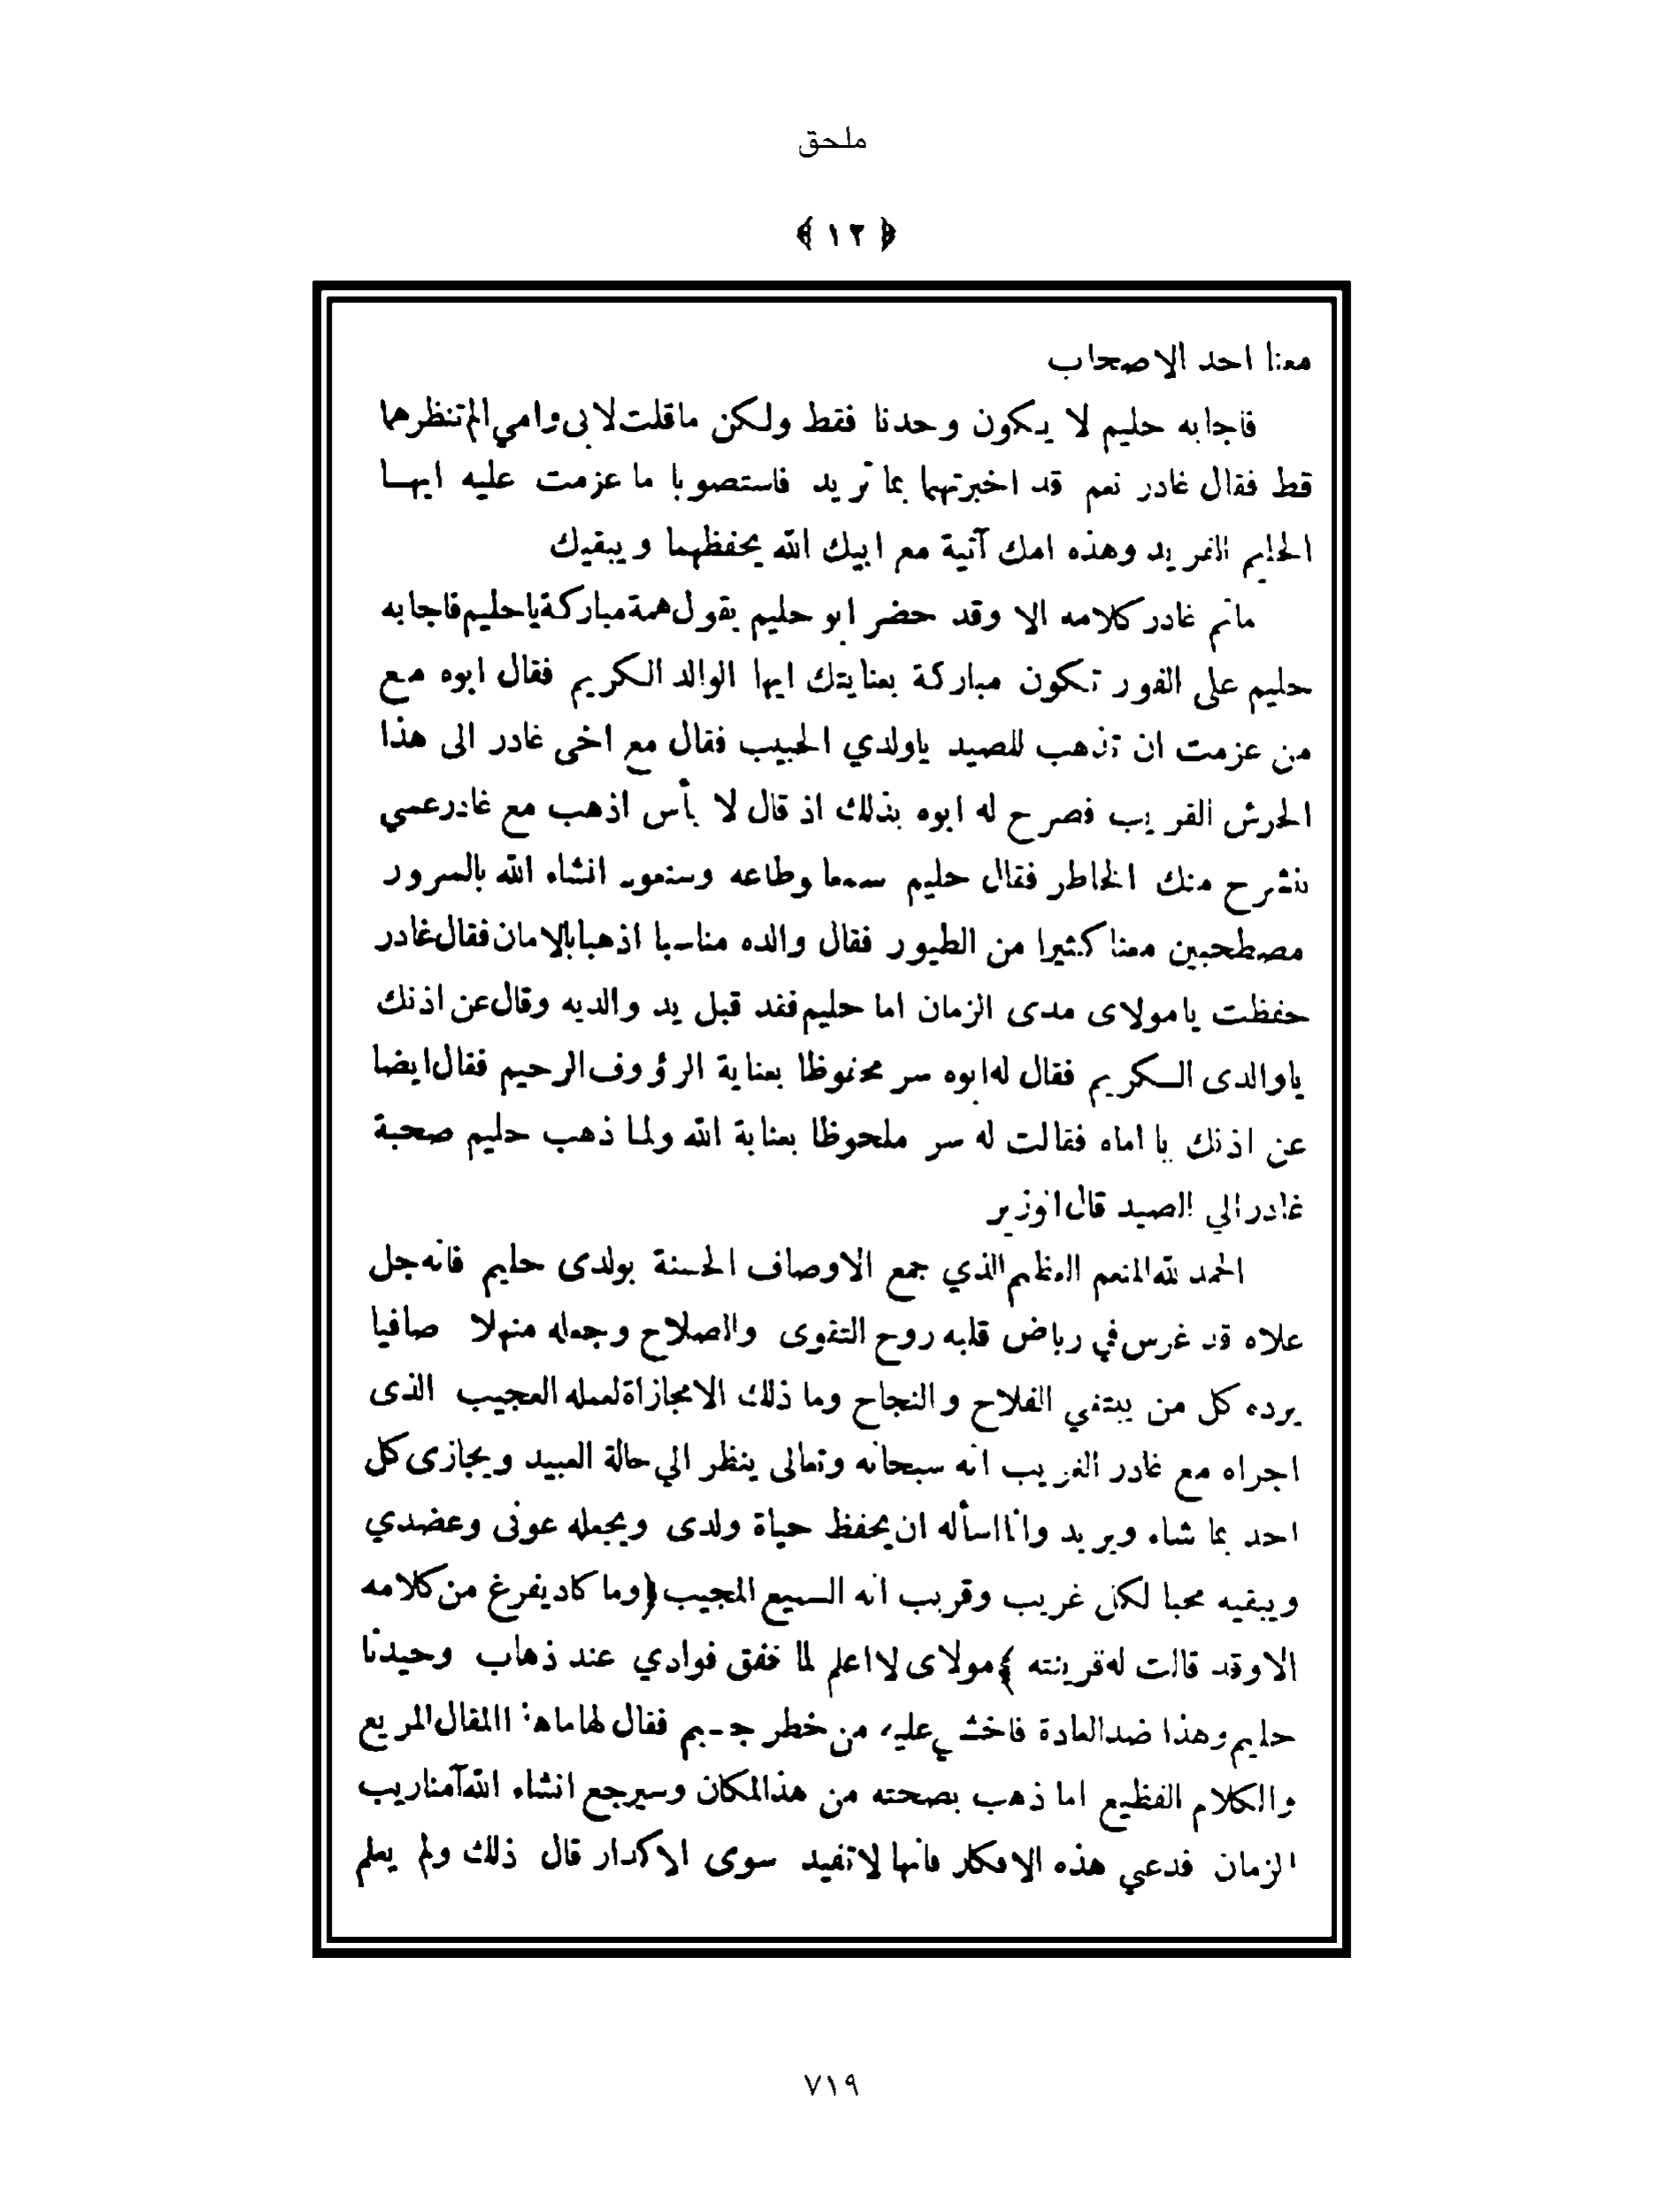 ملحق
﴿ ١٢ ﴾
معنا احد الاصحاب
فاجابه حليم لا يكون وحدنا فقط ولكن ماقلت لابى وامي الم تنظرهما
قط فقال غادر نعم قد اخبرتهما بما تريد فاستصوبا ما عزمت عليه ايهـا
الحليم الفريد وهذه امك آتية مع ابيك الله يحفظهما ويبقيك
ماتم غادر كلامه الا وقد حضر ابو حليم يقول همة مباركة ياحليم فاجابه
حليم على الفور تكون مباركة بعنايتك ايها الوالد الكريم فقال ابوه مع
من عزمت ان تذهب للصيد ياولدي الحبيب فقال مع اخى غادر الى هذا
الحرش القريب فصرح له ابوه بذلك اذ قال لا بأس اذهب مع غادر عسي
ينشرح منك الخاطر فقال حليم سمعا وطاعه وسنعود انشاء الله بالسرور
مصطحبين معنا كثيرا من الطيور فقال والده مناسبا اذهبا بالامان فقال غادر
حفظت يامولاى مدى الزمان اما حليم فقد قبل يد والديه وقال عن اذنك
ياوالدى الـكريم فقال له ابوه سر محفوظا بعناية الرؤوف الرحيم فقال ايضا
عن اذنك يا اماه فقالت له سر ملحوظا بعناية الله ولما ذهب حليم صحبة
غادر الي الصيد قال الوزير
الحمد لله المنعم العظيم الذي جمع الاوصاف الحسنة بولدى حليم فانه جل
علاه قد غرس في رياض قلبه روح التقوى والصلاح وجعله منهلا صافيا
يرده كل من يبتغي الفلاح والنجاح وما ذلك الامجازاة لعمله العجيب الذى
اجراه مع غادر الغريب انه سبحانه وتعالى ينظر الي حالة العبيد ويجازى كل
احد بما شاء ويريد وانا اسأله ان يحفظ حياة ولدى ويجعله عونى وعضدي
ويبقيه محبا لكل غريب وقريب انه السميع المجيب ﴿وما كاد يفرغ من كلامه
الا وقد قالت له قرينته ﴾ مولاى لا اعلم لما خفق فوادي عند ذهاب وحيدنا
حليم وهذا ضد العادة فاخشى عليه من خطر جسيم فقال لها ماهذا المقال المريع
والكلام الفظيع اما ذهب بصحته من هذالمكان وسيرجع انشاء الله آمنا ريب
الزمان فدعي هذه الافكار فانها لاتفيد سوى الاكدار قال ذلك ولم يعلم
٧١٩